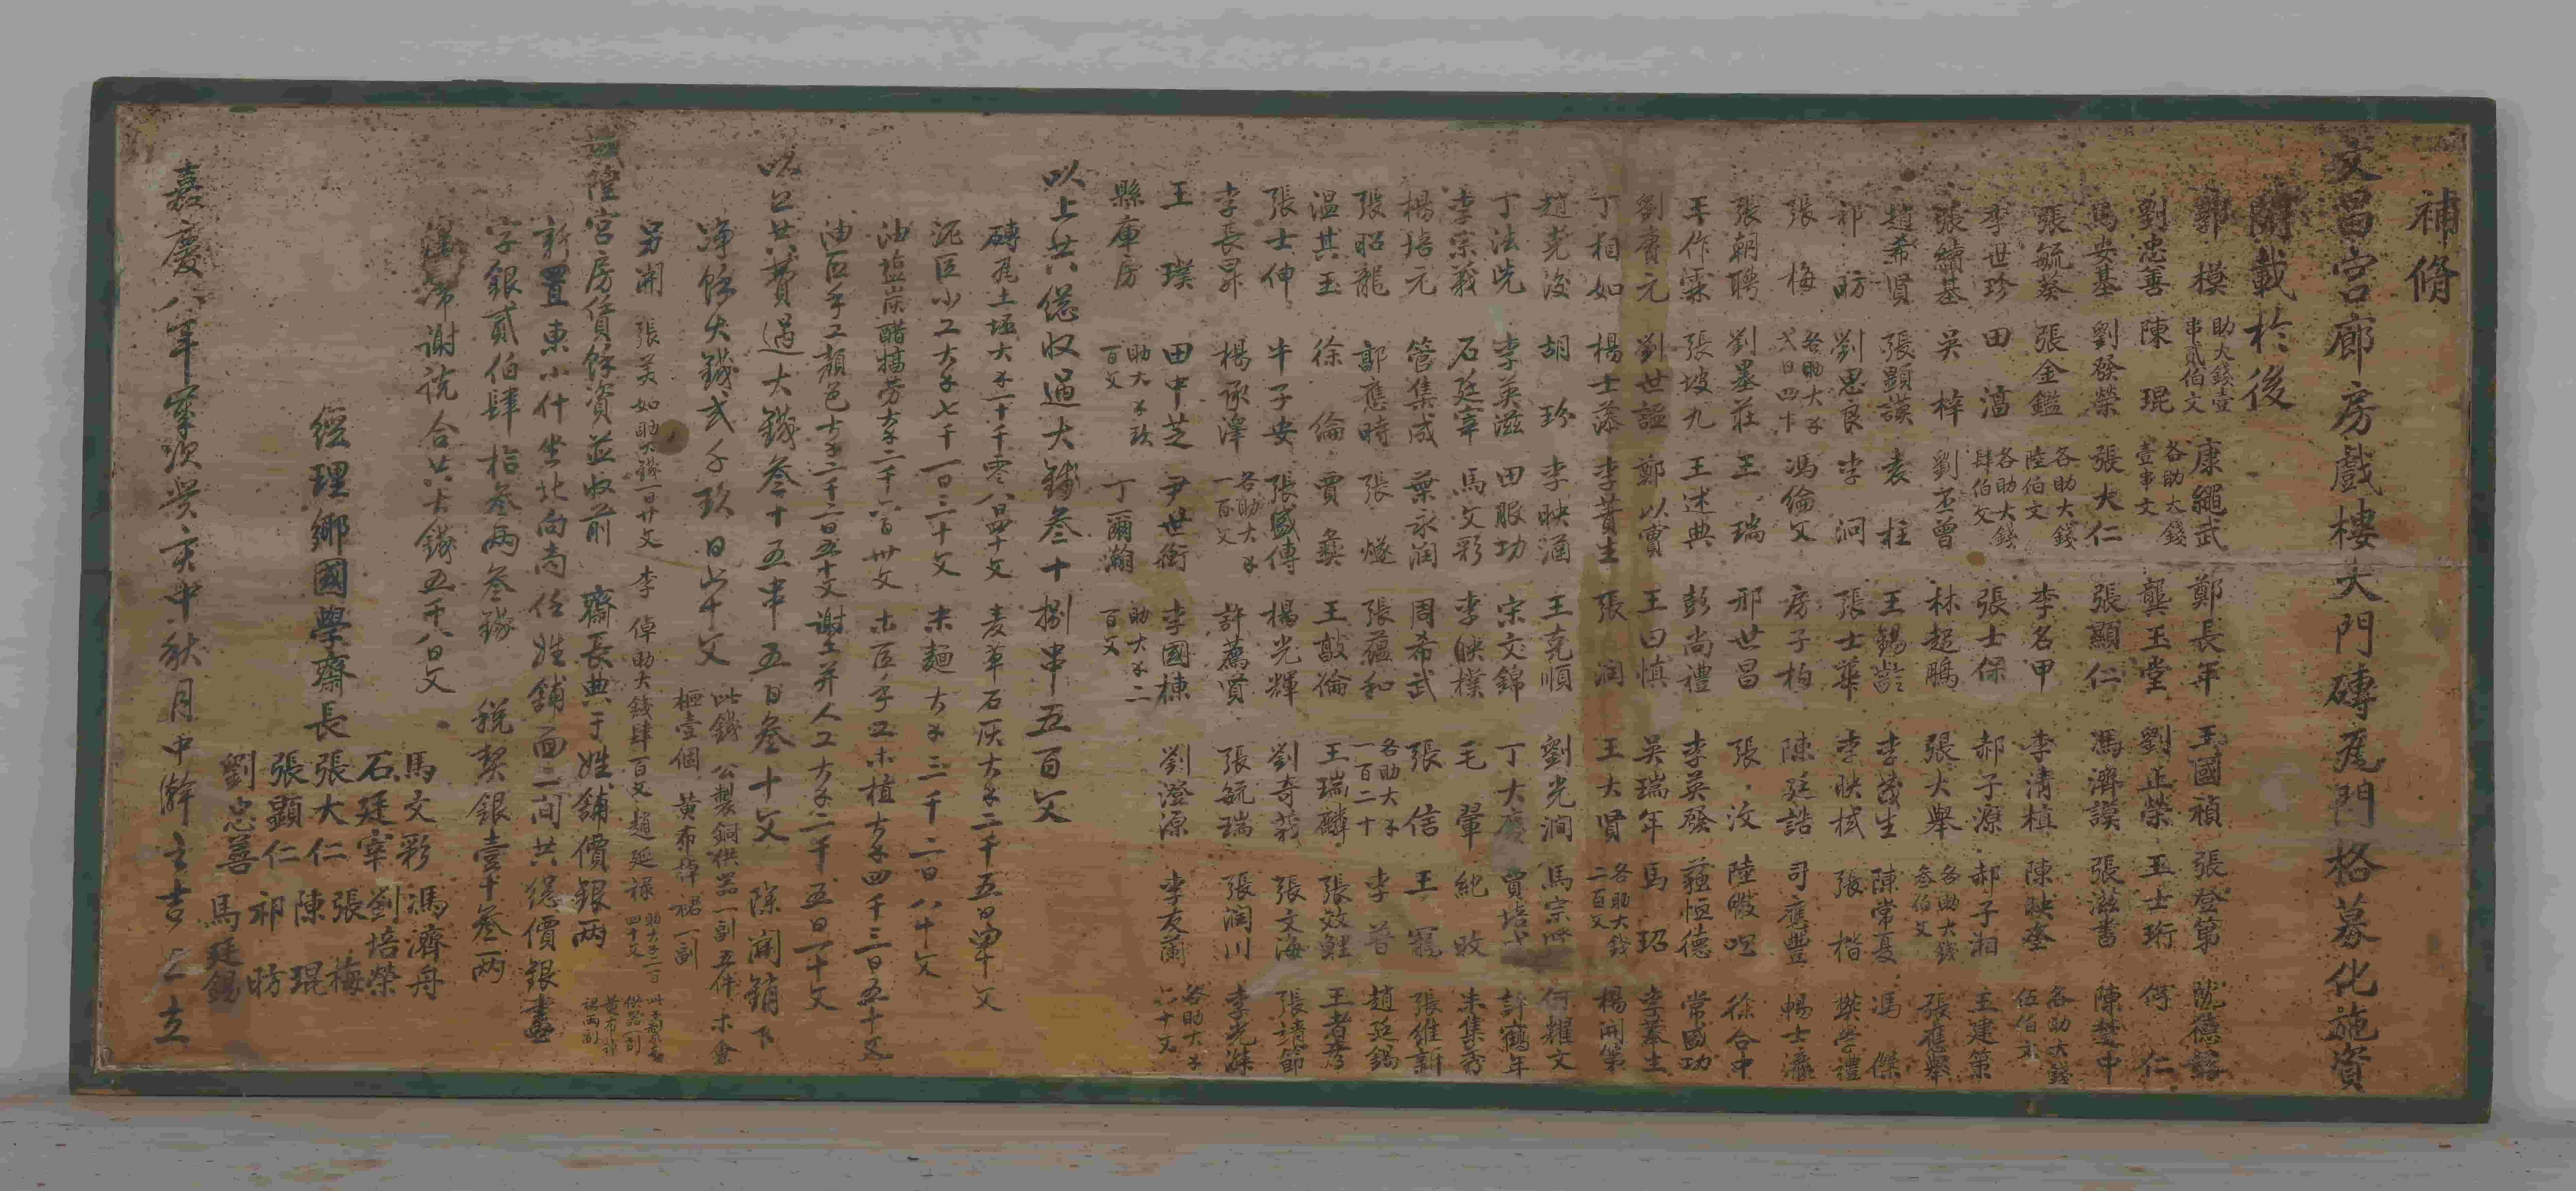 補脩
文昌宮廊房戲樓大門磚瓦門格募化施資
開載於後
郭模 助大錢壹串貳伯文 康繩武 鄭長年 王國禎 張登第
劉忠善 陳琨 各助大錢壹串文 龔玉堂 劉正榮 王士珩 仁
馬安基 劉發榮 張大仁 張顯仁 馮濟謨 張滋書 陳楚中
張毓葵 張金鑑 各助大錢陸伯文 李名甲 李清植 陳映奎 各助大錢伍伯文
李世珍 田溋 各助大錢肆伯文 張士保 郝子源 郝子湘 王建第
張續基 吳梓 劉丕曾 林起鵬 張大舉 各助大錢叁伯文 張應舉
趙希賢 張顯謨 袁柱 王錫齡 李茂生 陳常夏 馮傑
祁昉 劉思良 李洞 張士華 李映棫 張楷 學禮
張梅 各助大錢弍百四十文 馮綸文 房子柏 陳廷誥 司應豐 暢士瀛
張朝聘 劉基莊 王瑞 邢世昌 張汶 陸 徐合中
王作霖 張坡九 王述典 彭尚禮 李英發 薤恒德 常國功
劉齊元 劉世謚 鄭以賓 王曰慎 吳瑞年 馬玿 李蓁生
丁相如 楊士 李蕡生 張潤 王大賢 各助大錢二百文 楊開第
趙克浚 胡珍 李映涵 王克順 劉光澗 馬宗 何耀文
丁法先 李英滋 田服功 宋文錦 丁大 賈培 許鶴年
李宗羲 石廷宰 馬文彩 李映樸 毛翬 紀畋 朱集秀
楊培元 管集成 葉永潤 周希武 張信 王寵 張維新
張昭龍 郭應時 張燧 張蘊和 各助大錢一百二十 李普 趙廷錫
溫其玉 徐倫 賈彝 王敲倫 王瑞麟 張效鯉 王者孝
張士伸 牛子安 張盛傳 楊光輝 劉奇莪 張文海 張靖節
李長昇 楊承澤 各助大錢一百文 許薦賢 張毓瑞 張潤川 李光
王璞 田中芝 尹世衡 李國棟 劉澄源 李友蘭 各助大錢六十文
縣庫房 助大錢玖百文 丁爾瀚 助大錢二百文
以上共總收過大錢叁十捌串五百文
磚瓦土坯大錢一十千零八百四十文 麦草石灰大錢二千五百四十文
泥匠小工大錢七千一百三十文 米麵大錢三千二百八十文
油塩炭醋犒劳大錢二千六百卅文 木匠手工木植大錢四千三百五十文
油匠手工顏色大錢二千二百五十文 謝土并人工大錢二千五百一十文
以上共費過大錢叁十五串五百叁十文 除開銷下
淨餘大錢弍千玖百七十文 此錢公製銅供器一副五件木會柩壹個 黄布棹裙一副
另開 張美如助大錢一百廿文 李倬助大錢肆百文 趙延禄助大錢一百四十文
隍宮房賃餘資並收前 齋長典于姓舖價銀两
新置東小什坐北向南任姓舖面二间共總價銀
字銀貳伯肆拾叁两叁錢 税契銀壹十叁两
謝説合共大錢五千八百文
經理鄉國學齋長
馬文彩 馮濟舟
石廷宰 劉培榮
張大仁 張梅
張顯仁 陳琨
劉忠善 祁昉
馬廷錫
嘉慶八年歲次癸亥中秋月中澣之吉 立